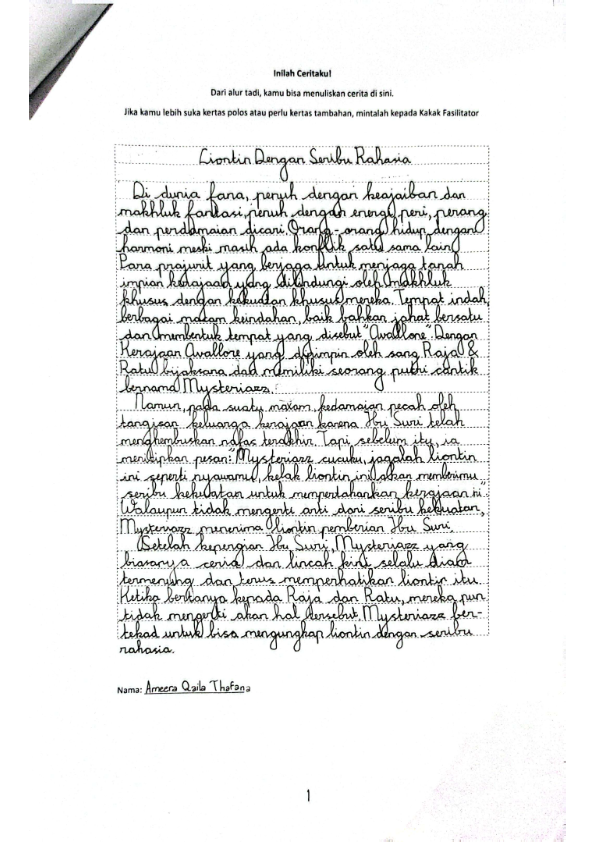 Inilah Ceritaku!
Dari alur tadi, kamu bisa menuliskan cerita di sini.
Jika kamu lebih suka kertas polos atau perlu kertas tambahan, mintalah kepada Kakak Fasilitator
Liontin Dengan Seribu Rahasia
Di dunia fana, penuh dengan keajaiban dan
makhluk fantasi, penuh dengan energi, peri, perang
dan perdamaian dicari. Orang-orang hidup dengan
harmoni meski masih ada konflik satu sama lain.
Para prajurit yang berjaga untuk menjaga tanah
impian kerajaan yang dilindungi oleh makhluk
khusus dengan kekuatan khusus mereka. Tempat indah,
berbagai macam keindahan, baik bahkan jahat bersatu
dan membentuk tempat yang disebut "Avallore". Dengan
Kerajaan Avallore yang dipimpin oleh sang Raja &
Ratu bijaksana dan memiliki seorang putri cantik
bernama Mysteriazz.
Namun, pada suatu malam, kedamaian pecah oleh
tangisan keluarga kerajaan karena Ibu Suri telah
menghembuskan nafas terakhir. Tapi sebelum itu, ia
menitipkan pesan: "Mysteriazz cucuku, jagalah liontin
ini seperti nyawamu, kelak liontin ini akan memberimu
seribu kekuatan untuk mempertahankan kerajaan ini."
Walaupun tidak mengerti arti dari seribu kekuatan,
Mysteriazz menerima liontin pemberian Ibu Suri.
Setelah kepergian Ibu Suri, Mysteriazz yang
biasanya ceria dan lincah kini selalu diam
termenung dan terus memperhatikan liontin itu.
Ketika bertanya kepada Raja dan Ratu, mereka pun
tidak mengerti akan hal tersebut. Mysteriazz ber-
tekad untuk bisa mengungkap liontin dengan seribu
rahasia.
Nama: Ameera Qaila Thafana
1